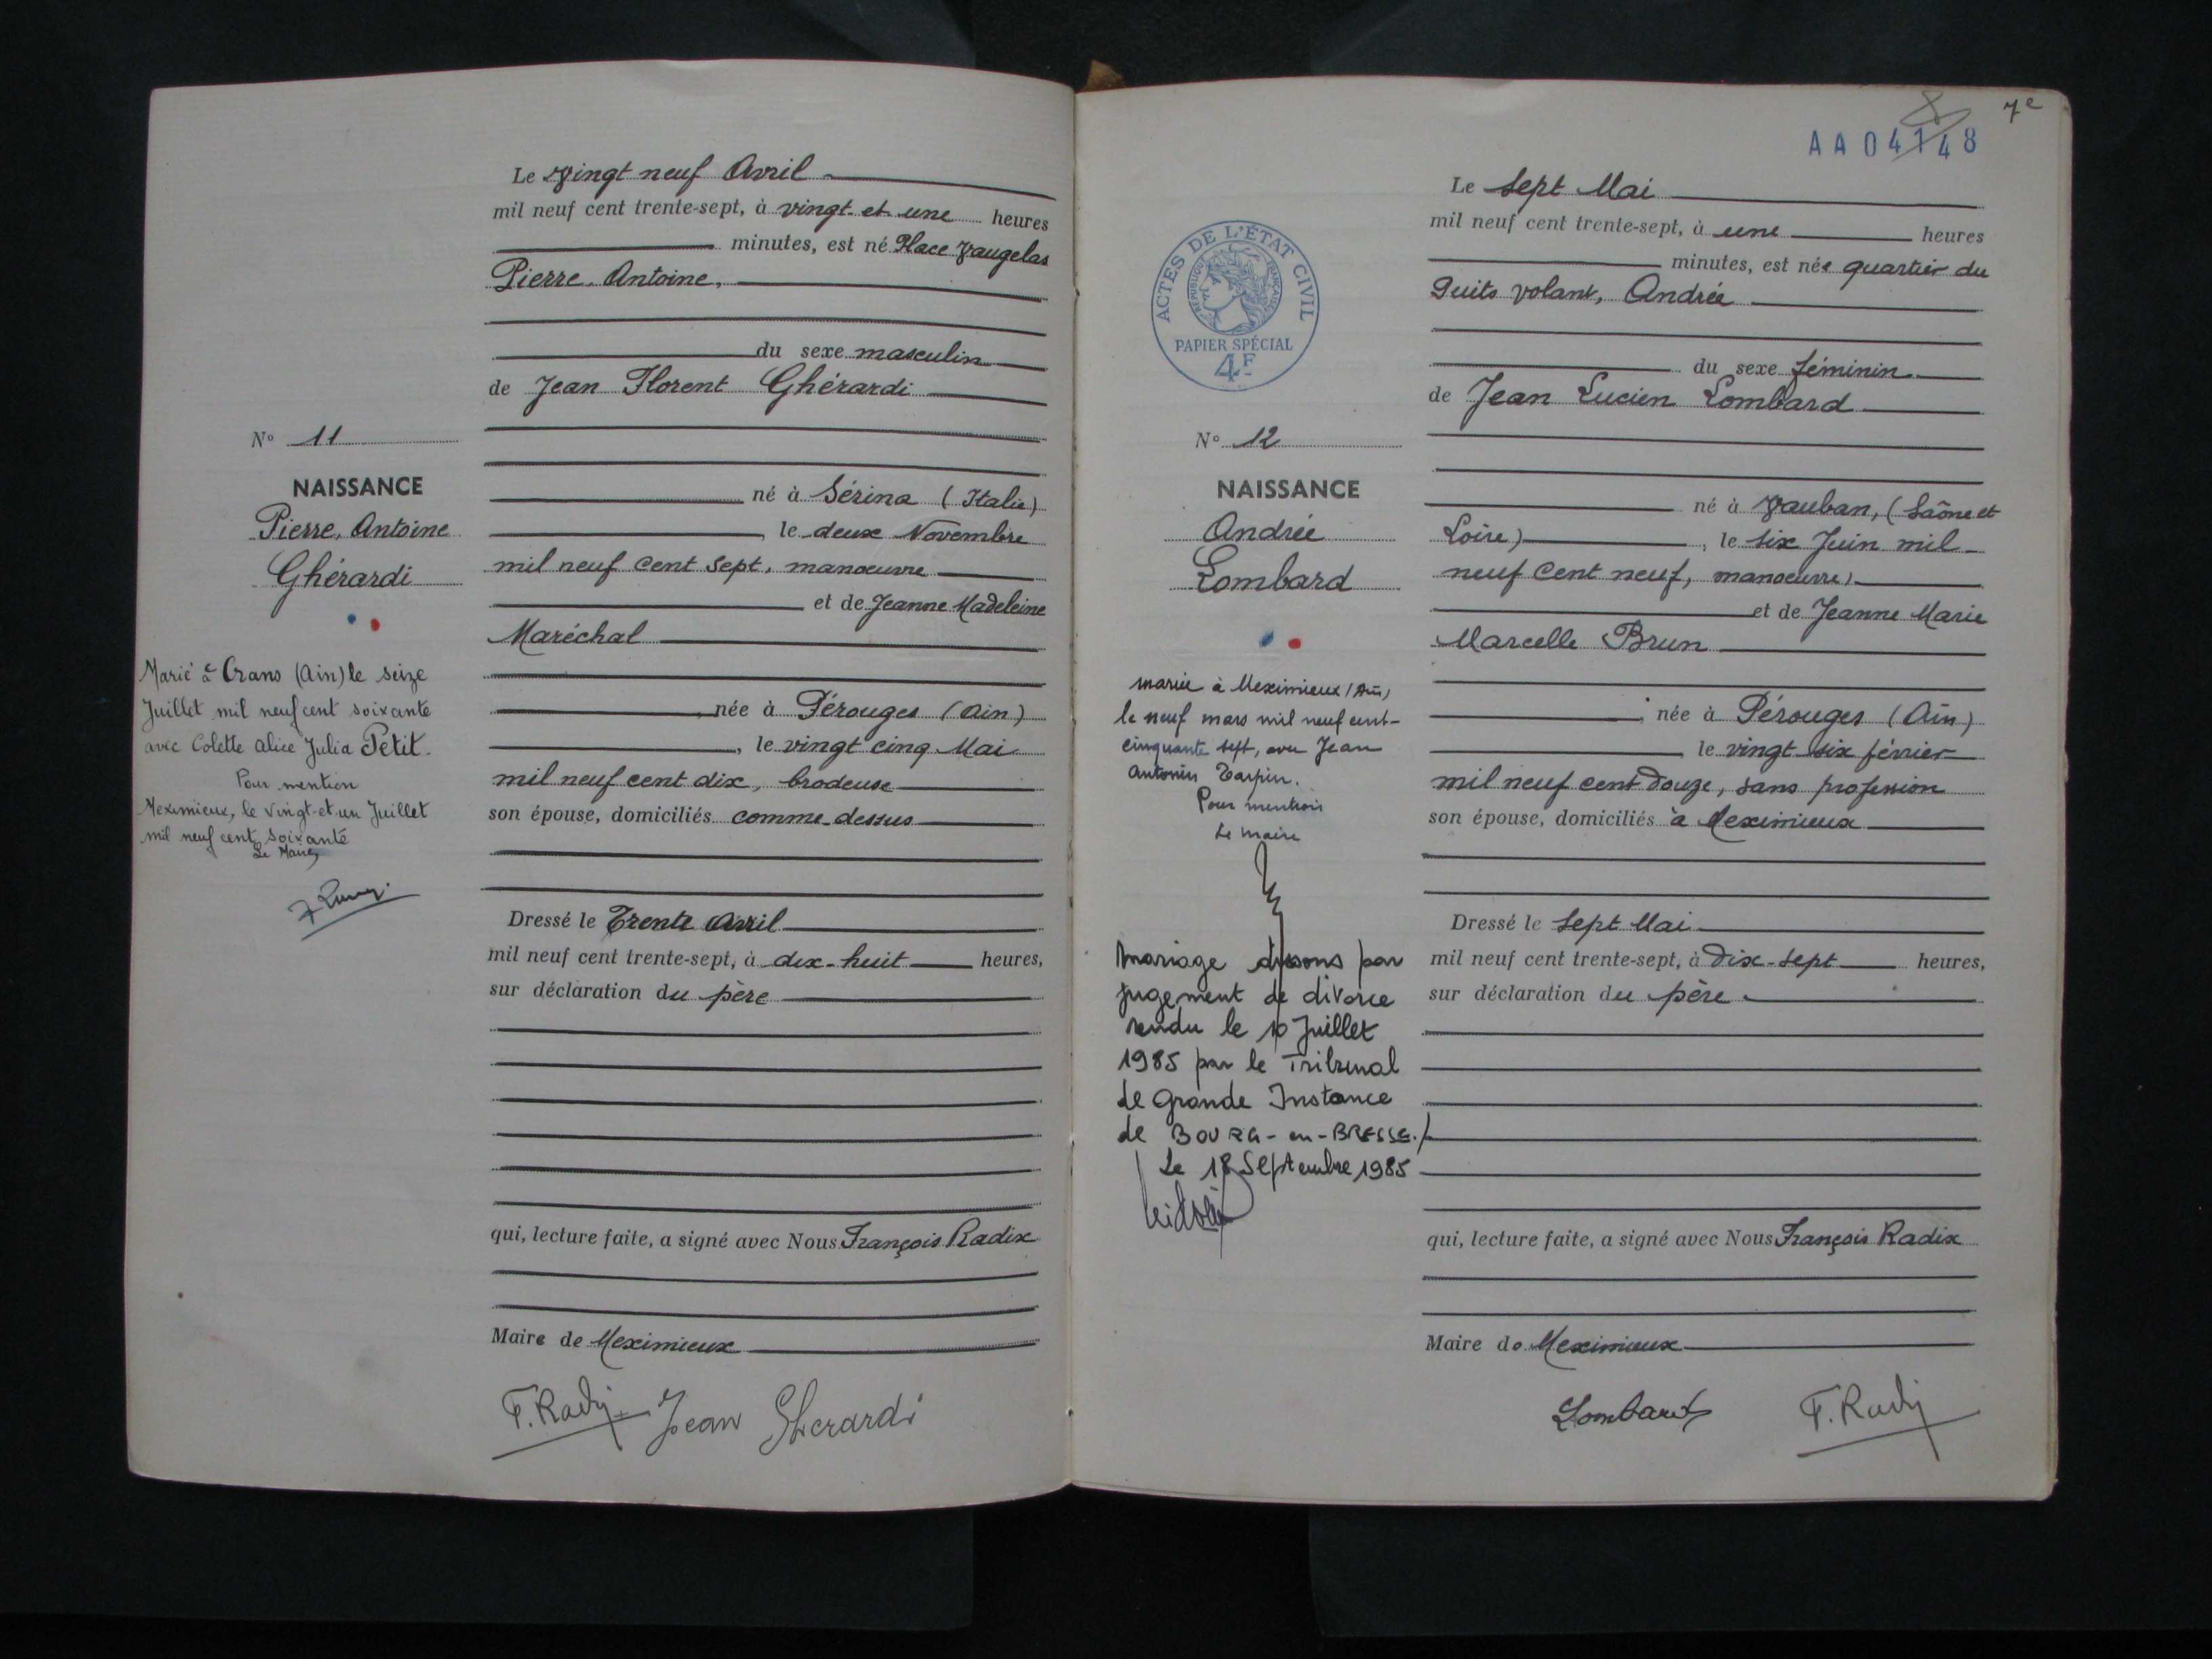 Le Vingt neuf Avril
mil neuf cent trente-sept, à vingt et une heures
minutes, est né Place Vaugelas
Pierre, Antoine,
du sexe masculin
de Jean Florent Ghérardi
N° 11
NAISSANCE
Pierre, Antoine
Ghérardi
né à Sérina (Italie)
, le deux Novembre
mil neuf cent sept, manoeuvre
et de Jeanne Madeleine
Maréchal
née à Pérouges (Ain)
, le vingt cinq Mai
mil neuf cent dix, brodeuse
son épouse, domiciliés comme dessus
Marié à Crans (Ain) le seize
Juillet mil neuf cent soixante
avec Colette Alice Julia Petit.
Pour mention
Meximieux, le vingt-et-un Juillet
mil neuf cent soixante
Le Maire,
Dressé le Trente Avril
mil neuf cent trente-sept, à dix-huit heures,
sur déclaration du père
qui, lecture faite, a signé avec Nous François Radix
Maire de Meximieux
F. Radix Jean Gherardi
7e
8
AA 04148
Le Sept Mai
mil neuf cent trente-sept, à une heures
minutes, est née quartier du
Puits volant, Andrée
du sexe féminin
de Jean Lucien Lombard
ACTES DE L'ÉTAT CIVIL
RÉPUBLIQUE FRANÇAISE
PAPIER SPÉCIAL
4F
N° 12
NAISSANCE
Andrée
Lombard
né à Vauban, (Saône et
Loire), le six Juin mil
neuf cent neuf, manoeuvre
et de Jeanne Marie
Marcelle Brun
née à Pérouges (Ain)
le vingt six février
mil neuf cent douze, sans profession
son épouse, domiciliés à Meximieux
mariée à Meximieux (Ain)
le neuf mars mil neuf cent-
cinquante sept, avec Jean
Antonin Tarpin.
Pour mention
Le maire
Mariage dissous par
jugement de divorce
rendu le 10 Juillet
1985 par le Tribunal
de Grande Instance
de BOURG-en-BRESSE./
Le 18 Septembre 1985
Dressé le Sept Mai
mil neuf cent trente-sept, à Dix-sept heures,
sur déclaration du père
qui, lecture faite, a signé avec Nous François Radix
Maire de Meximieux
Lombard F. Radix